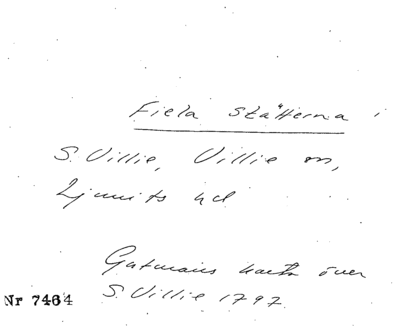 Fiela Stätterna i
S. Villie, Villie sn,
Ljunits hd
Gutmans karta över
S. Villie 1797.
Nr 7464